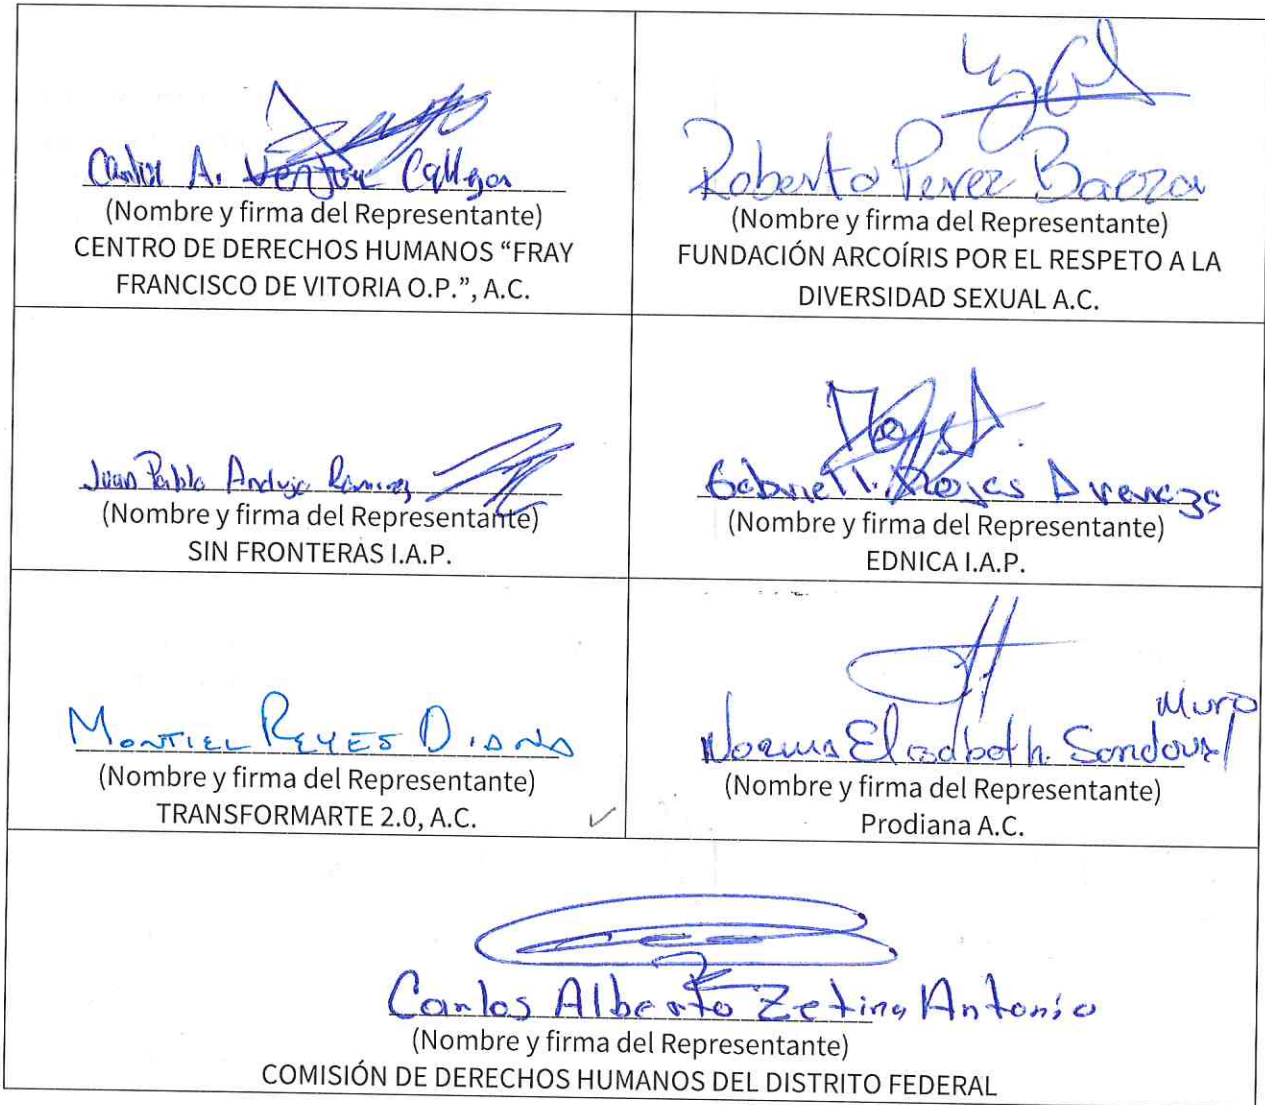 Carlos A. Ventura Callejas
(Nombre y firma del Representante)
CENTRO DE DERECHOS HUMANOS “FRAY
FRANCISCO DE VITORIA O.P.”, A.C.
Roberto Perez Baeza
(Nombre y firma del Representante)
FUNDACIÓN ARCOÍRIS POR EL RESPETO A LA
DIVERSIDAD SEXUAL A.C.
Juan Pablo Ramirez
(Nombre y firma del Representante)
SIN FRONTERAS I.A.P.
Gabriel Rojas
(Nombre y firma del Representante)
EDNICA I.A.P.
MONTIEL REYES DIANA
(Nombre y firma del Representante)
TRANSFORMARTE 2.0, A.C.
Muro
Norma Elisabeth Sandoval
(Nombre y firma del Representante)
Prodiana A.C.
Carlos Alberto Zetina Antonio
(Nombre y firma del Representante)
COMISIÓN DE DERECHOS HUMANOS DEL DISTRITO FEDERAL